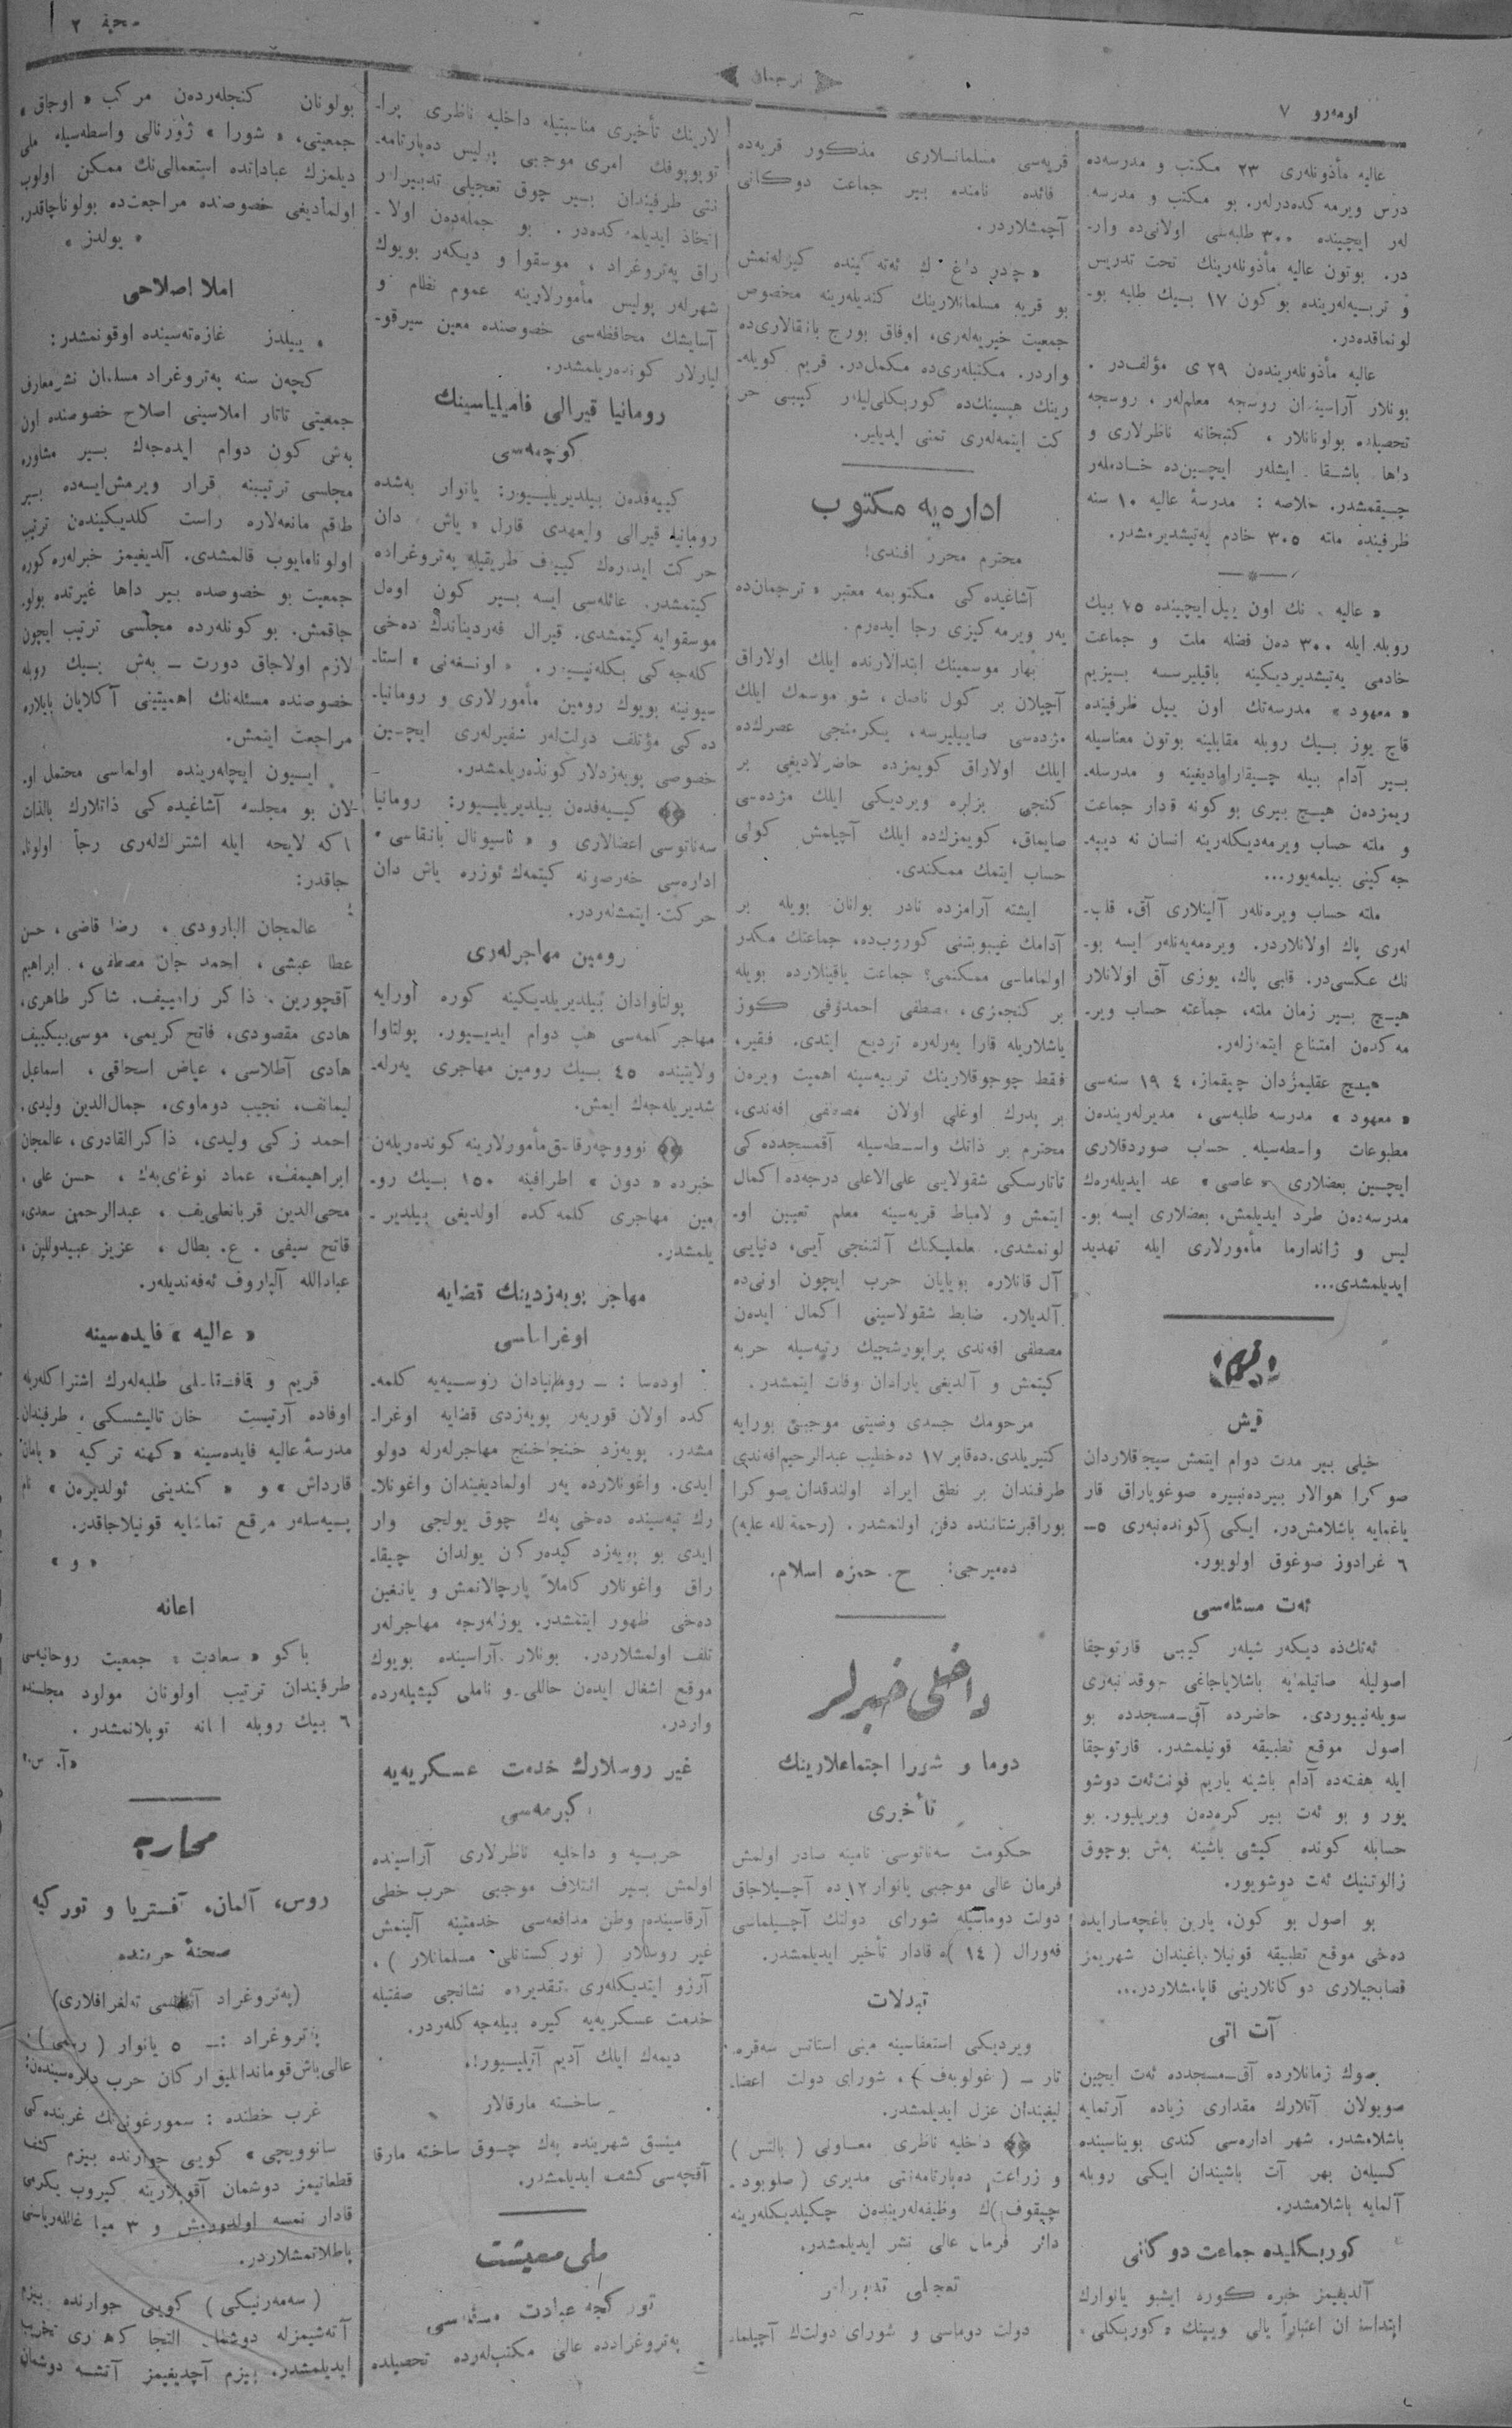 نومەرو ٧
ترجمان
صحیفە ٢
عالیە مأذونلەری ٢٣ مکتب و مدرسەدە
درس ویرمەکدەدرلەر. بو مکتب و مدرسە-
لەر ایچیندە ٣٠٠ طلبەلی اولانی دە وار-
در. بوتون عالیە مأذونلەرینك تحت تدریس
و تربیەلەریندە بو کون ١٧ بیك طلبە بو-
لونماقدەدر.
عالیە مأذونلەریندن ٢٩ ی مؤلف در.
بونلار آراسیندان روسجە معلم لەر، روسجە
تحصیلدە بولونانلار، کتبخانە ناظرلاری و
داها باشقا ایشلەر ایچین دە خادملەر
چیقمشدر. خلاصە: مدرسۀ عالیە ١٠ سنە
ظرفیندە ملتە ٣٠٥ خادم یەتیشدیرمشدر.
«عالیە» نك اون ییل ایچیندە ٧٥ بیك
روبلە ایلە ٣٠٠ دەن فضلە ملت و جماعت
خادمی یەتیشدیردیکینە باقیلیرسە بیزیم
«معهود» مدرسەنك اون ییل ظرفیندە
قاچ یوز بیك روبلە مقابلینە بوتون معناسیلە
بیر آدام بیلە چیقارامادیغینە و مدرسلە-
ریمزدەن هیچ بیری بو کونە قدار جماعت
و ملتە حساب ویرمەدیکلەرینە انسان نە دییە-
جەکینی بیلمەیور...
ملتە حساب ویرەنلەر آلینلاری آق، قلب-
لەری پاك اولانلاردر. ویرەمەیەنلەر ایسە بو-
نك عکسی در. قلبی پاك، یوزی آق اولانلار
هیچ بیر زمان ملتە، جماعتە حساب ویر-
مەکدەن امتناع ایتمزلەر.
هیچ عقلیمزدان چیقماز، ١٩٠٤ سنەسی
«معهود» مدرسە طلبەسی، مدیرلەریندەن
مطبوعات واسطەسیلە حساب صوردقلاری
ایچین بعضلاری «عاصی» عد ایدیلەرەك
مدرسەدەن طرد ایدیلمش، بعضلاری ایسە پو-
لیس و ژاندارما مأمورلاری ایلە تهدید
ایدیلمشدی...
قیش
خیلی بیر مدت دوام ایتمش سیجاقلاردان
صوکرا هوالار بیردەنبیرە صوغویاراق قار
یاغمایە باشلامش در. ایکی کوندەنبەری ٥-
٦ غرادوز صوغوق اولویور.
ئەت مسئلەسی
ئەتك دە دیکەر شیلەر کیبی قارتوچقا
اصولیلە صاتیلمایە باشلایاجاغی چوقدنبەری
سویلەنییوردی. حاضردە آق-مسجددە بو
اصول موقع تطبیقە قونیلمشدر. قارتوچقا
ایلە هفتەدە آدام باشینە یاریم فونت ئەت دوشو
یور و بو ئەت بیر کرەدەن ویریلیور. بو
حسابلە کوندە کیشی باشینە بەش بوچوق
زالوتنیك ئەت دوشویور.
بو اصول بو کون، یارین باغچەسارایدە
دەخی موقع تطبیقە قونیلاجاغیندان شهریمز
قصابجیلاری دوکانلارینی قاپامشلاردر...
آت اتی
صوك زمانلاردە آق-مسجددە ئەت ایچین
صویولان آتلارك مقداری زیادە آرتمایە
باشلامشدر. شهر ادارەسی کندی بویناسیندە
کسیلەن بهر آت باشیندان ایکی روبلە
آلمایە باشلامشدر.
کوربکلیدە جماعت دوکانی
آلدیغیمز خبرە کورە ایشبو یانوارك
ابتداسندان اعتباراً یالی بویینك «کوربکلی»
قریەسی مسلمانلاری مذکور قریەدە
فائدە نامندە بیر جماعت دوکانی
آچمشلاردر.
«چادر داغ» ك ئەتەکیندە کیزلەنمش
بو قریە مسلمانلارینك کندیلەرینە مخصوص
جمعیت خیریەلەری، اوفاق بورج بانقالاری دە
واردر. مکتبلەری دە مکمل در. قریم کویلە-
رینك هپسینك دە کوربکلی لیلەر کیبی حر
کت ایتمەلەری تمنی ایدیلیر.
ادارەیە مکتوب
محترم محرر افندی!
آشاغیدەکی مکتوبمە معتبر «ترجمان» دە
یەر ویرمەکیزی رجا ایدەرم.
بهار موسمینك ابتدالارندە ایلك اولاراق
آچیلان بر کول ناصل، شو موسمك ایلك
مژدەسی صاییلیرسە، یکرمنجی عصرك دە
ایلك اولاراق کویمزدە حاضرلادیغی بر
کنجی بزلرە ویردیکی ایلك مژدەسی
صایماق، کویمزك دە ایلك آچیلمش کولی
حساب ایتمك ممکندی.
ایشتە آرامزدە نادر بولنان بویلە بر
آدامك غیبوبتنی کوروب دە، جماعتك مکدر
اولماماسی ممکنمی؟ جماعت یاقینلاردە بویلە
بر کنجمزی، مصطفی احمدوفی کوز
یاشلاریلە قارا یەرلەرە تودیع ایتدی. فقیر،
فقط چوجوقلارینك تربیەسینە اهمیت ویرەن
بر پدرك اوغلی اولان مصطفی افەندی،
محترم بر ذاتك واسطەسیلە آقمسجددەکی
تاتارسکی شقولایی علی الاعلی درجەدە اکمال
ایتمش و لامباط قریەسینە معلم تعیین او-
لونمشدی. معلملیکنك آلتنجی آیی، دنیایی
آل قانلارە بویایان حرب ایچون اونی دە
آلدیلار. ضابط شقولاسینی اکمال ایدەن
مصطفی افەندی پراپورشچیك رتبەسیلە حربە
کیتمش و آلدیغی یارادان وفات ایتمشدر.
مرحومك جسدی وصیتی موجبی بورایە
کتیریلدی. دەقابر ١٧ دە خطیب عبدالرحیم افەندی
طرفندان بر نطق ایراد اولندقدان صوکرا
بورا قبرستانندە دفن اولنمشدر. (رحمة الله علیه)
دەمیرجی: ح. حمزە اسلام.
داخلی خبرلر
دوما و شورا اجتماعلارینك
تأخری
حکومت سەناتوسی نامینە صادر اولمش
فرمان عالی موجبی یانوار ١٢ دە آچیلاجاق
دولت دوماسیلە شورای دولتك آچیلماسی
فەورال (١٤) ە قادار تأخیر ایدیلمشدر.
تبدلات
ویردیکی استعفاسینە مبنی استاتس سەقرە-
تار - (غولوبەف)، شورای دولت اعضا-
لیغیندان عزل ایدیلمشدر.
داخلیە ناظری معاونی (بالتس)
و زراعت دەپارتامەنتی مدیری (صلوبود-
چیقوف) ك وظیفەلەریندەن چکیلدیکلەرینە
دائر فرمان عالی نشر ایدیلمشدر.
تعجلی تدبیرلر
دولت دوماسی و شورای دولتك آچیلما-
لارینك تأخیری مناسبتیلە داخلیە ناظری پرا-
توپوپوفك امری موجبی پولیس دەپارتامە-
نتی طرفیندان بیر چوق تعجیلی تدبیرلر
اتخاذ ایدیلمەکدەدر. بو جملەدەن اولا-
راق پەتروغراد، موسقوا و دیکەر بویوك
شهرلەر پولیس مأمورلارینە عموم نظام و
آسایشك محافظەسی خصوصندە معین سیرقو-
لیارلار کوندەریلمشدر.
رومانیا قیرالی فامیلیاسینك
کوچمەسی
کییەفدەن بیلدیریلییور: یانوار بەشدە
رومانیا قیرالی ولیعهدی قارل «یاش» دان
حرکت ایدەرەك کییف طریقیلە پەتروغرادە
کیتمشدر. عائلەسی ایسە بیر کون اوەل
موسقوایە کیتمشدی. قیرال فەردیناندك دەخی
کلەجەکی بکلەنییور. «اونغەنی» استا-
سیونینە بویوك رومین مأمورلاری و رومانیا-
دەکی مؤتلف دولت لەر سفیرلەری ایچین
خصوصی پویەزدلار کوندەریلمشدر.
کییەفدەن بیلدیریلییور: رومانیا
سەناتوسی اعضالاری و «ناسیونال بانقاسی»
ادارەسی خەرصونە کیتمەك ئوزرە یاش دان
حرکت ایتمشلەردر.
رومین مهاجرلەری
پولتاوادان بیلدیریلدیکینە کورە اورایە
مهاجر کلمەسی هپ دوام ایدییور. پولتاوا
ولایتیندە ٤٥ بیك رومین مهاجری یەرلە-
شدیریلەجەك ایمش.
نوووچەرقاسق مأمورلارینە کوندەریلەن
خبردە «دون» اطرافینە ١٥٠ بیك رو-
مین مهاجری کلمەکدە اولدیغی بیلدیر-
یلمشدر.
مهاجر پویەزدینك قضایە
اوغراماسی
اودەسا: - رومانیادان روسیەیە کلمە-
کدە اولان قوریەر پویەزدی قضایە اوغرا-
مشدر. پویەزد خنجاخنج مهاجرلەرلە دولو
ایدی. واغونلاردە یەر اولمادیغیندان واغونلا-
رك تپەسیندە دەخی پەك چوق یولجی وار
ایدی بو پویەزد کیدەرکن یولدان چیقا-
راق واغونلار کاملاً پارچالانمش و یانغین
دەخی ظهور ایتمشدر. یوزلەرجە مهاجرلەر
تلف اولمشلاردر. بونلار آراسیندە بویوك
موقع اشغال ایدەن حاللی و ناملی کیشیلەردە
واردر.
غیر روسلارك خدمت عسکریەیە
کیرمەسی
حربیە و داخلیە ناظرلاری آراسیندە
اولمش بیر ائتلاف موجبی حرب خطی
آرقاسیندە وطن مدافعەسی خدمتینە آلینمش
غیر روسلار (تورکستانلی مسلمانلار)،
آرزو ایتدیکلەری تقدیردە نشانجی صفتیلە
خدمت عسکریەیە کیرە بیلەجەکلەردر.
دیمەك ایلك آدیم آتیلییور!..
ساختە مارقالار
مینسق شهریندە پەك چوق ساختە مارقا
آقچەسی کشف ایدیلمشدر.
ملی معیشت
تورکجە عبادت مسئلەسی
پەتروغراددە عالی مکتب لەردە تحصیلدە
بولونان کنجلەردەن مرکب «اوجاق»
جمعیتی، «شورا» ژورنالی واسطەسیلە ملی
دیلمزك عباداتدە استعمالی نك ممکن اولوب
اولمادیغی خصوصندە مراجعت دە بولوناجاقدر.
«یولدز»
املا اصلاحی
«ییلدز» غازەتەسیندە اوقونمشدر:
کچەن سنە پەتروغراد مسلمان نشر معارف
جمعیتی تاتار املاسینی اصلاح خصوصندە اون
بەش کون دوام ایدەجەك بیر مشاورە
مجلسی ترتیبینە قرار ویرمش ایسەدە بیر
طاقم مانعەلارە راست کلدیکیندەن ترتیب
اولونامایوب قالمشدی. آلدیغیمز خبرلەرە کورە
جمعیت بو خصوصدە بیر داها غیرتدە بولو-
جاقمش. بو کونلەردە مجلسی ترتیب ایچون
لازم اولاجاق دورت - بەش بیك روبلە
خصوصندە مسئلەنك اهمیتینی آکلایان بایلارە
مراجعت ایتمش.
ایسیون ایچلەریندە اولماسی محتمل او-
لان بو مجلسە آشاغیدەکی ذاتلارك بالذات
یاکە لایحە ایلە اشتراك لەری رجا اولونا-
جاقدر:
عالمجان البارودی، رضا قاضی، حسن
عطا عبشی، احمد جان مصطفی، ابراهیم
آقچورین، ذاکر رامییف، شاکر طاهری،
هادی مقصودی، فاتح کریمی، موسی بیکییف
هادی آطلاسی، عیاض اسحاقی، اسماعیل
لیمانف، نجیب دوماوی، جمال الدین ولیدی،
احمد زکی ولیدی، ذاکر القادری، عالمجان
ابراهیمف، عماد نوغای بەك، حسن علی،
محی الدین قربانعلی یف، عبدالرحمن سعدی،
فاتح سیفی، ع. بطال، عزیز عبیدوللین،
عبادالله آلپاروف ئەفەندیلەر.
«عالیە» فایدەسینە
قریم و قافقاسلی طلبەلەرك اشتراکلەریلە
اوفادە آرتیست خان تالیشسکی، طرفیندان
مدرسۀ عالیە فایدەسینە «کهنە ترکیە» «یامان
قارداش» و «کندینی ئولدیرەن» نام
پییەسلەر موقع تماشایە قونیلاجاقدر.
«و»
اعانە
باکو «سعادت» جمعیت روحانیەسی
طرفیندان ترتیب اولونان مولود مجلسندە
٦ بیك روبلە اعانە توپلانمشدر.
«آ. س.»
محاربە
روس، آلمان، آفستریا و تورکیە
صحنۀ حربندە
(پەتروغراد آگنتلیغی تەلغرافلاری)
پەتروغراد: - ٥ یانوار (رسمی).
عالی باش قوماندانلیق ارکان حرب دائرەسیندەن:
غرب خطندە: سمورغونی نك غربندەکی
سانوویچی» کویی جوارندە بیزم کشف
قطعاتیمز دوشمان آقوپلارینە کیروب یکرمی
قادار نمسە اولدورمش و ٣ مینا غاللەریاسی
پاطلاتمشلاردر.
(سەمەرنیکی) کویی جوارندە بیزم
آتەشیمزلە دوشمان التجا کاهلری تخریب
ایدیلمشدر. بیزم آچدیغیمز آتشە دوشمان